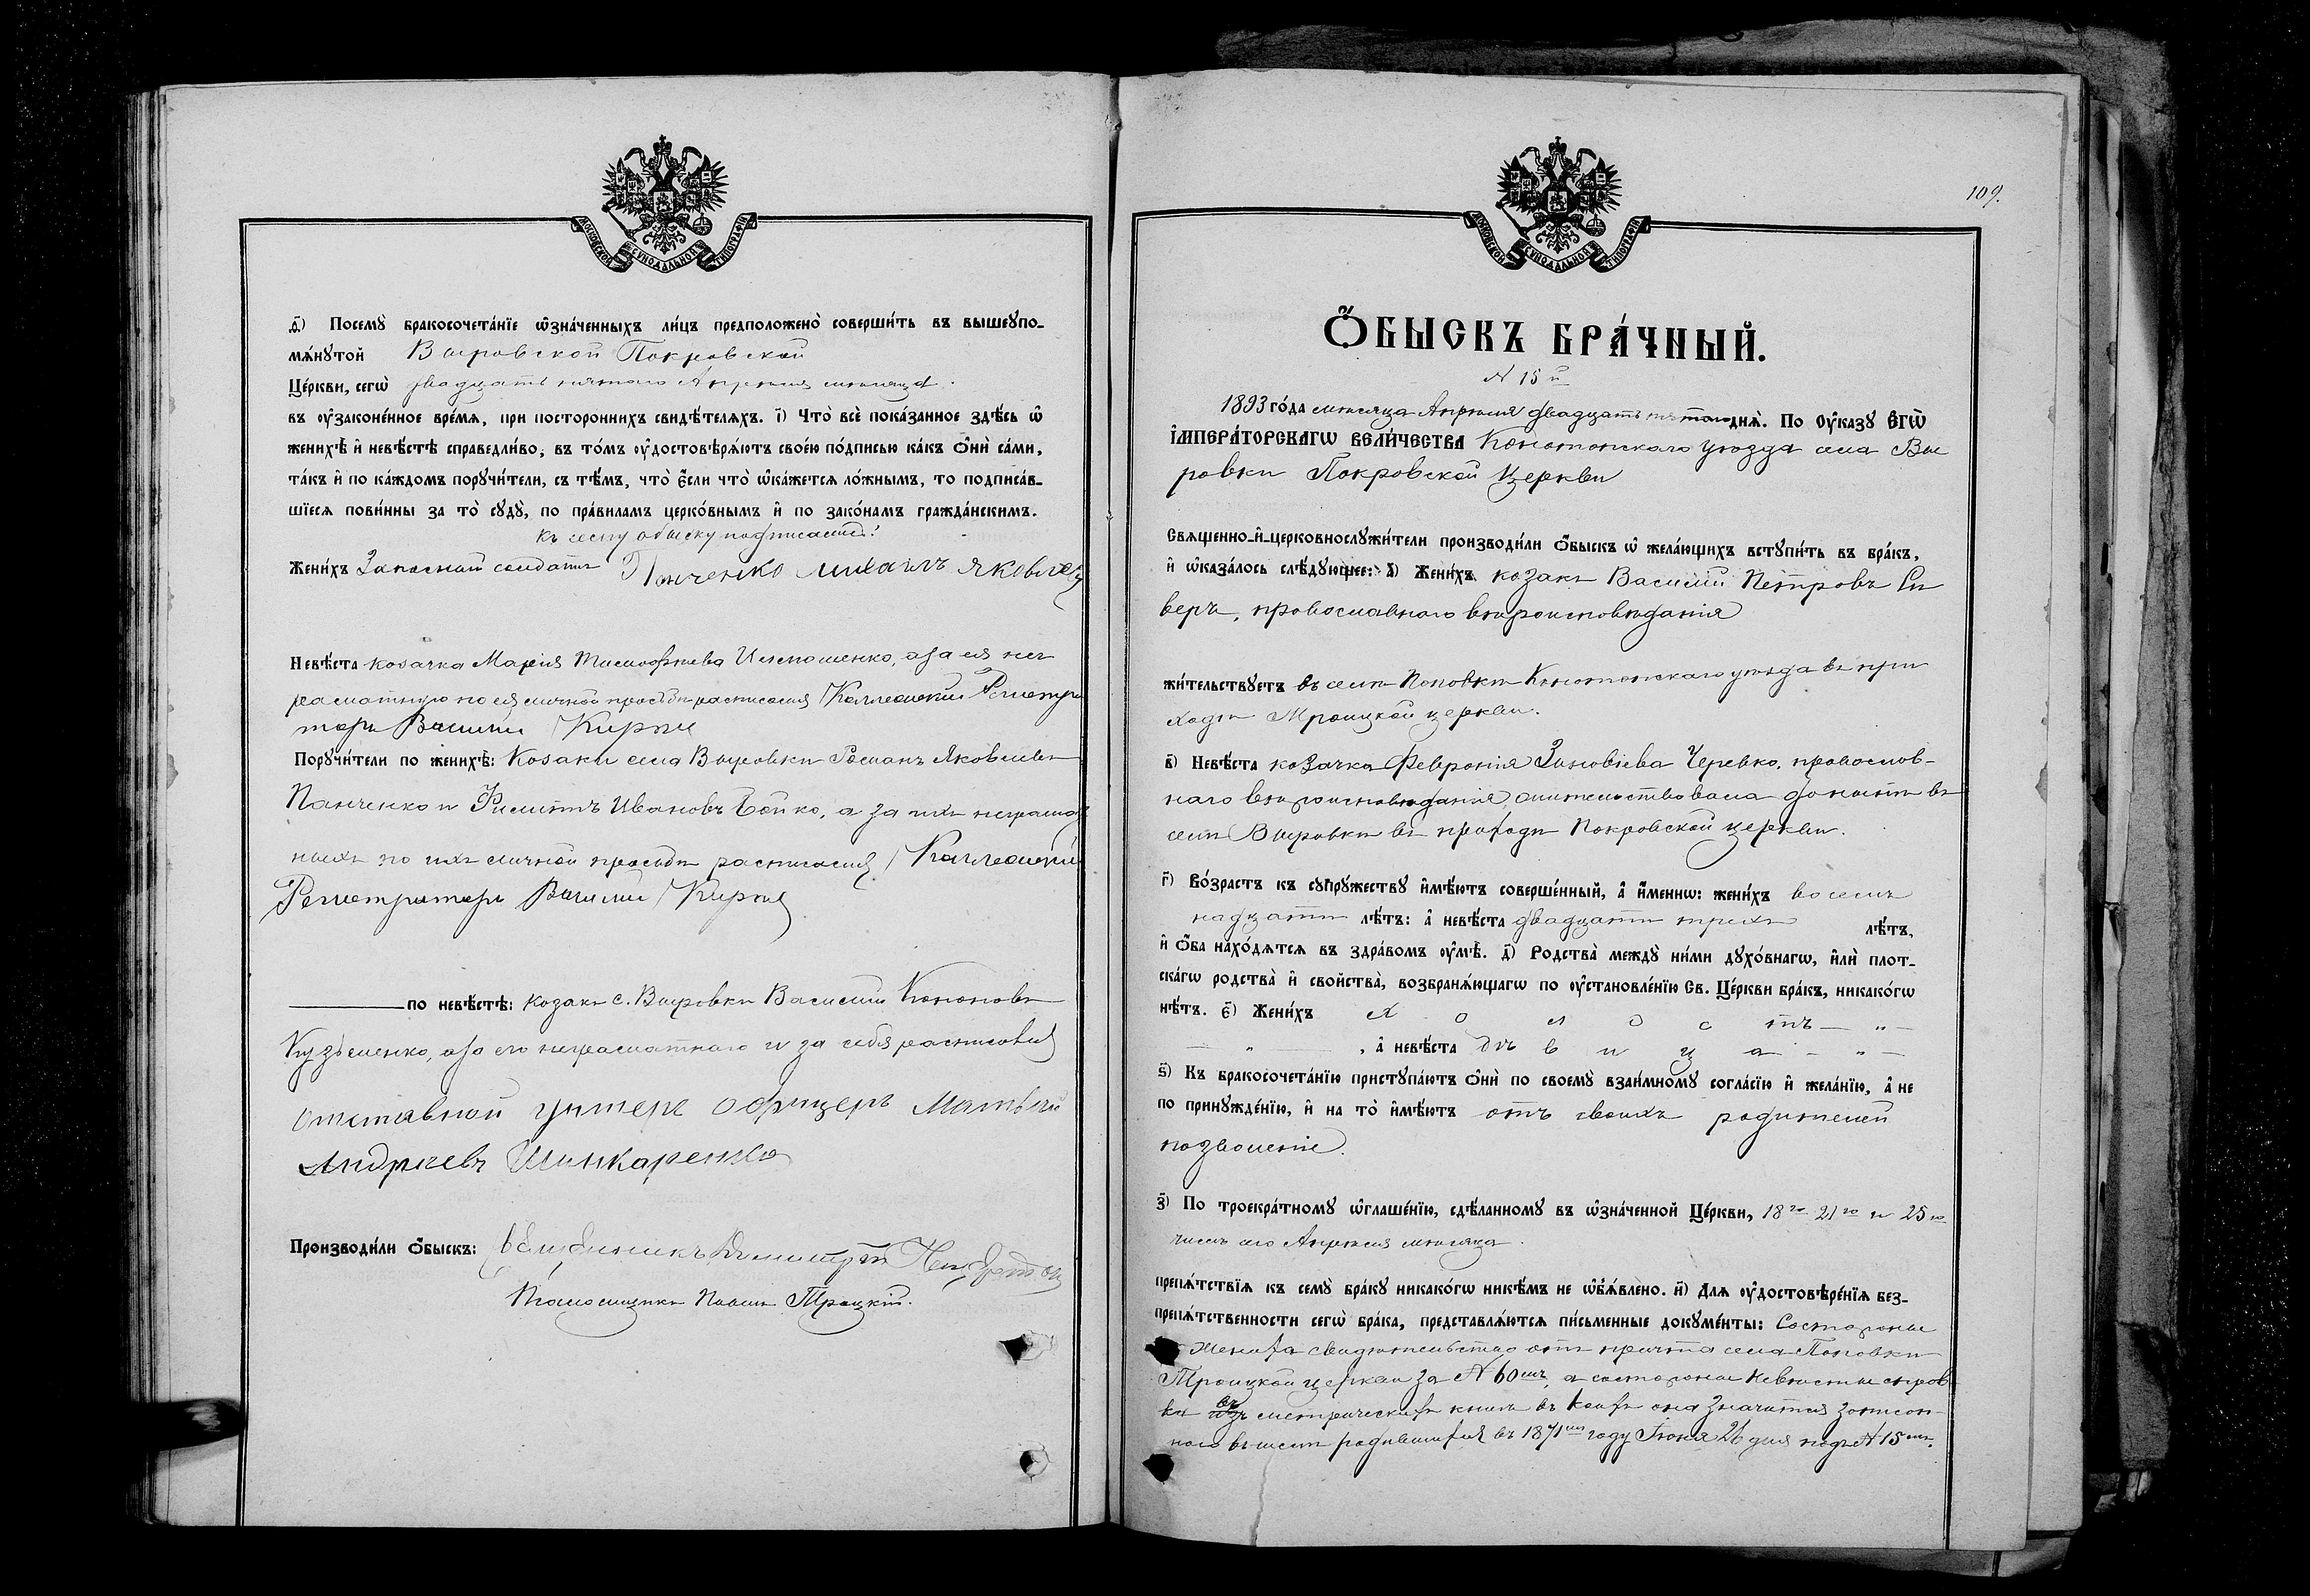 МОСКОВСКОЙ СѴНОДАЛЬНОЙ ТИПОГРАФІИ
д҃і) Посемꙋ̀ бракосочета́нїе ѡ҆зна́ченныхъ ли́цъ предположено̀ соверши́ть въ вышеꙋпо-
мѧ́нꙋтой Выровской Покровской
Це́ркви, сегѡ̀ двадцать пятаго Апрѣля мѣсяца
въ ᲂу҆законе́нное вре́мѧ, при посторо́ннихъ свидѣ́телѧхъ. і҃) Что̀ всѐ пока́занное здѣ́сь ѡ҆
женихѣ̀ и҆ невѣ́стѣ справедли́во, въ то́мъ ᲂу҆достовѣрѧ́ютъ свое́ю по́дписью ка́къ ѻ҆нѝ са́ми,
та́къ и҆ по ка́ждомъ порꙋчи́тели, съ тѣ́мъ, что̀ є҆́сли что̀ ѡ҆ка́жетсѧ ло́жнымъ, то подписа́в-
шїесѧ пови́нны за то̀ сꙋдꙋ̀, по пра́виламъ церко́внымъ и҆ по зако́намъ гражда́нскимъ.
Къ сему обыску подписались:
Жени́хъ Запасный солдатъ Панченко Михаилъ Яковлев
Невѣ́ста козачка Марія Тимофѣева Ильюшенко, а за ея не
грамотную по ея личной просьбѣ расписался Коллежскій Регистра
торъ Василій Кирѣй
Порꙋчи́тели по женихѣ̀: Козаки села Выровки Романъ Яковлевъ
Панченко и Филиппъ Ивановъ Бойко, а за ихъ неграмот
ныхъ по ихъ личной просьбѣ расписался Коллежскій
Регистраторъ Василій Кирѣй
по невѣ́стѣ: козакъ с. Выровки Василій Кононовъ
Кузьменко, а за его неграмотнаго и за себя расписался
отставной унтеръ офицеръ Матвѣй
Андреевъ Шинкаренко
Производи́ли ѻ҆́быскъ: Священникъ Димитрій
Псаломщикъ Павелъ Троцкій.
109.
МОСКОВСКОЙ СѴНОДАЛЬНОЙ ТИПОГРАФІИ
Ѻ҆́БЫСКЪ БРА́ЧНЫЙ.
№ 15й
1893 го́да мѣсяца Апрѣля двадцать пятаго днѧ̀. По Оу҆ка́зꙋ Є҆гѡ̀
І҆МПЕРА́ТОРСКАГѠ ВЕЛИ́ЧЕСТВА Конотопскаго уѣзда села Вы
ровки Покровской Церкви
Свѧще́нно-и҆-церковнослꙋжи́тели производи́ли ѻ҆́быскъ ѡ҆ жела́ющихъ встꙋпи́ть въ бра́къ,
и҆ ѡ҆каза́лось слѣ́дꙋющее: а҃) Жени́хъ козакъ Василій Петровъ Си
веръ, православнаго вѣроисповѣданія
жи́тельствꙋетъ въ селѣ Поповкѣ Конотопскаго уѣзда въ при
ходѣ Троицкой церкви.
в҃) Невѣ́ста козачка Февронія Зиновіева Черевко, православ-
наго вѣроисповѣданія, жительствовала донынѣ въ
селѣ Выровкѣ въ приходѣ Покровской церкви.
г҃) Во́зрастъ къ сꙋпрꙋ́жествꙋ и҆мѣ́ютъ соверше́нный, а҆ и҆́меннѡ: жени́хъ восем
надцати лѣ́тъ: а҆ невѣ́ста двадцати трехъ лѣ́тъ,
и҆ ѻ҆́ба нахо́дѧтсѧ въ здра́вомъ ᲂу҆мѣ̀. д҃) Родства̀ междꙋ̀ ни́ми дꙋхо́внагѡ, и҆лѝ плот-
ска́гѡ родства̀ и҆ свойства̀, возбранѧ́ющагѡ по ᲂу҆становле́нїю Св. Це́ркви бра́къ, никако́гѡ
нѣ́тъ. є҃) Жени́хъ х о л о с тъ — „ —
— „ — , а҆ невѣ́ста дѣ в и ц а — „ —
ѕ҃) Къ бракосочета́нїю пристꙋпа́ютъ ѻ҆нѝ по своемꙋ̀ взаи́мномꙋ согла́сїю и҆ жела́нїю, а҆ не
по принꙋжде́нїю, и҆ на то̀ и҆мѣ́ютъ отъ своихъ родителей
позволеніе.
з҃) По троекра́тномꙋ ѡ҆глаше́нїю, сдѣ́ланномꙋ въ ѡ҆зна́ченной Це́ркви, 18го 21го и 25го
числъ сего Апрѣля мѣсяца
препѧ́тствїѧ къ семꙋ̀ бра́кꙋ никако́гѡ никѣ́мъ не ѡ҆б̾ѧ́влено. и҃) Длѧ ᲂу҆достовѣре́нїѧ без-
препѧ́тственности сегѡ̀ бра́ка, представлѧ́ютсѧ пи́сьменные докꙋме́нты: Со стороны
жениха свидѣтельство отъ причта села Поповки
Троицкой церкви за № 60мъ, а со стороны невѣсты справ
ка въ изъ метрическихъ книгъ въ коихъ она значится записан-
ною въ числѣ родившихся въ 1871мъ году Іюня 26 дня подъ № 15мъ.